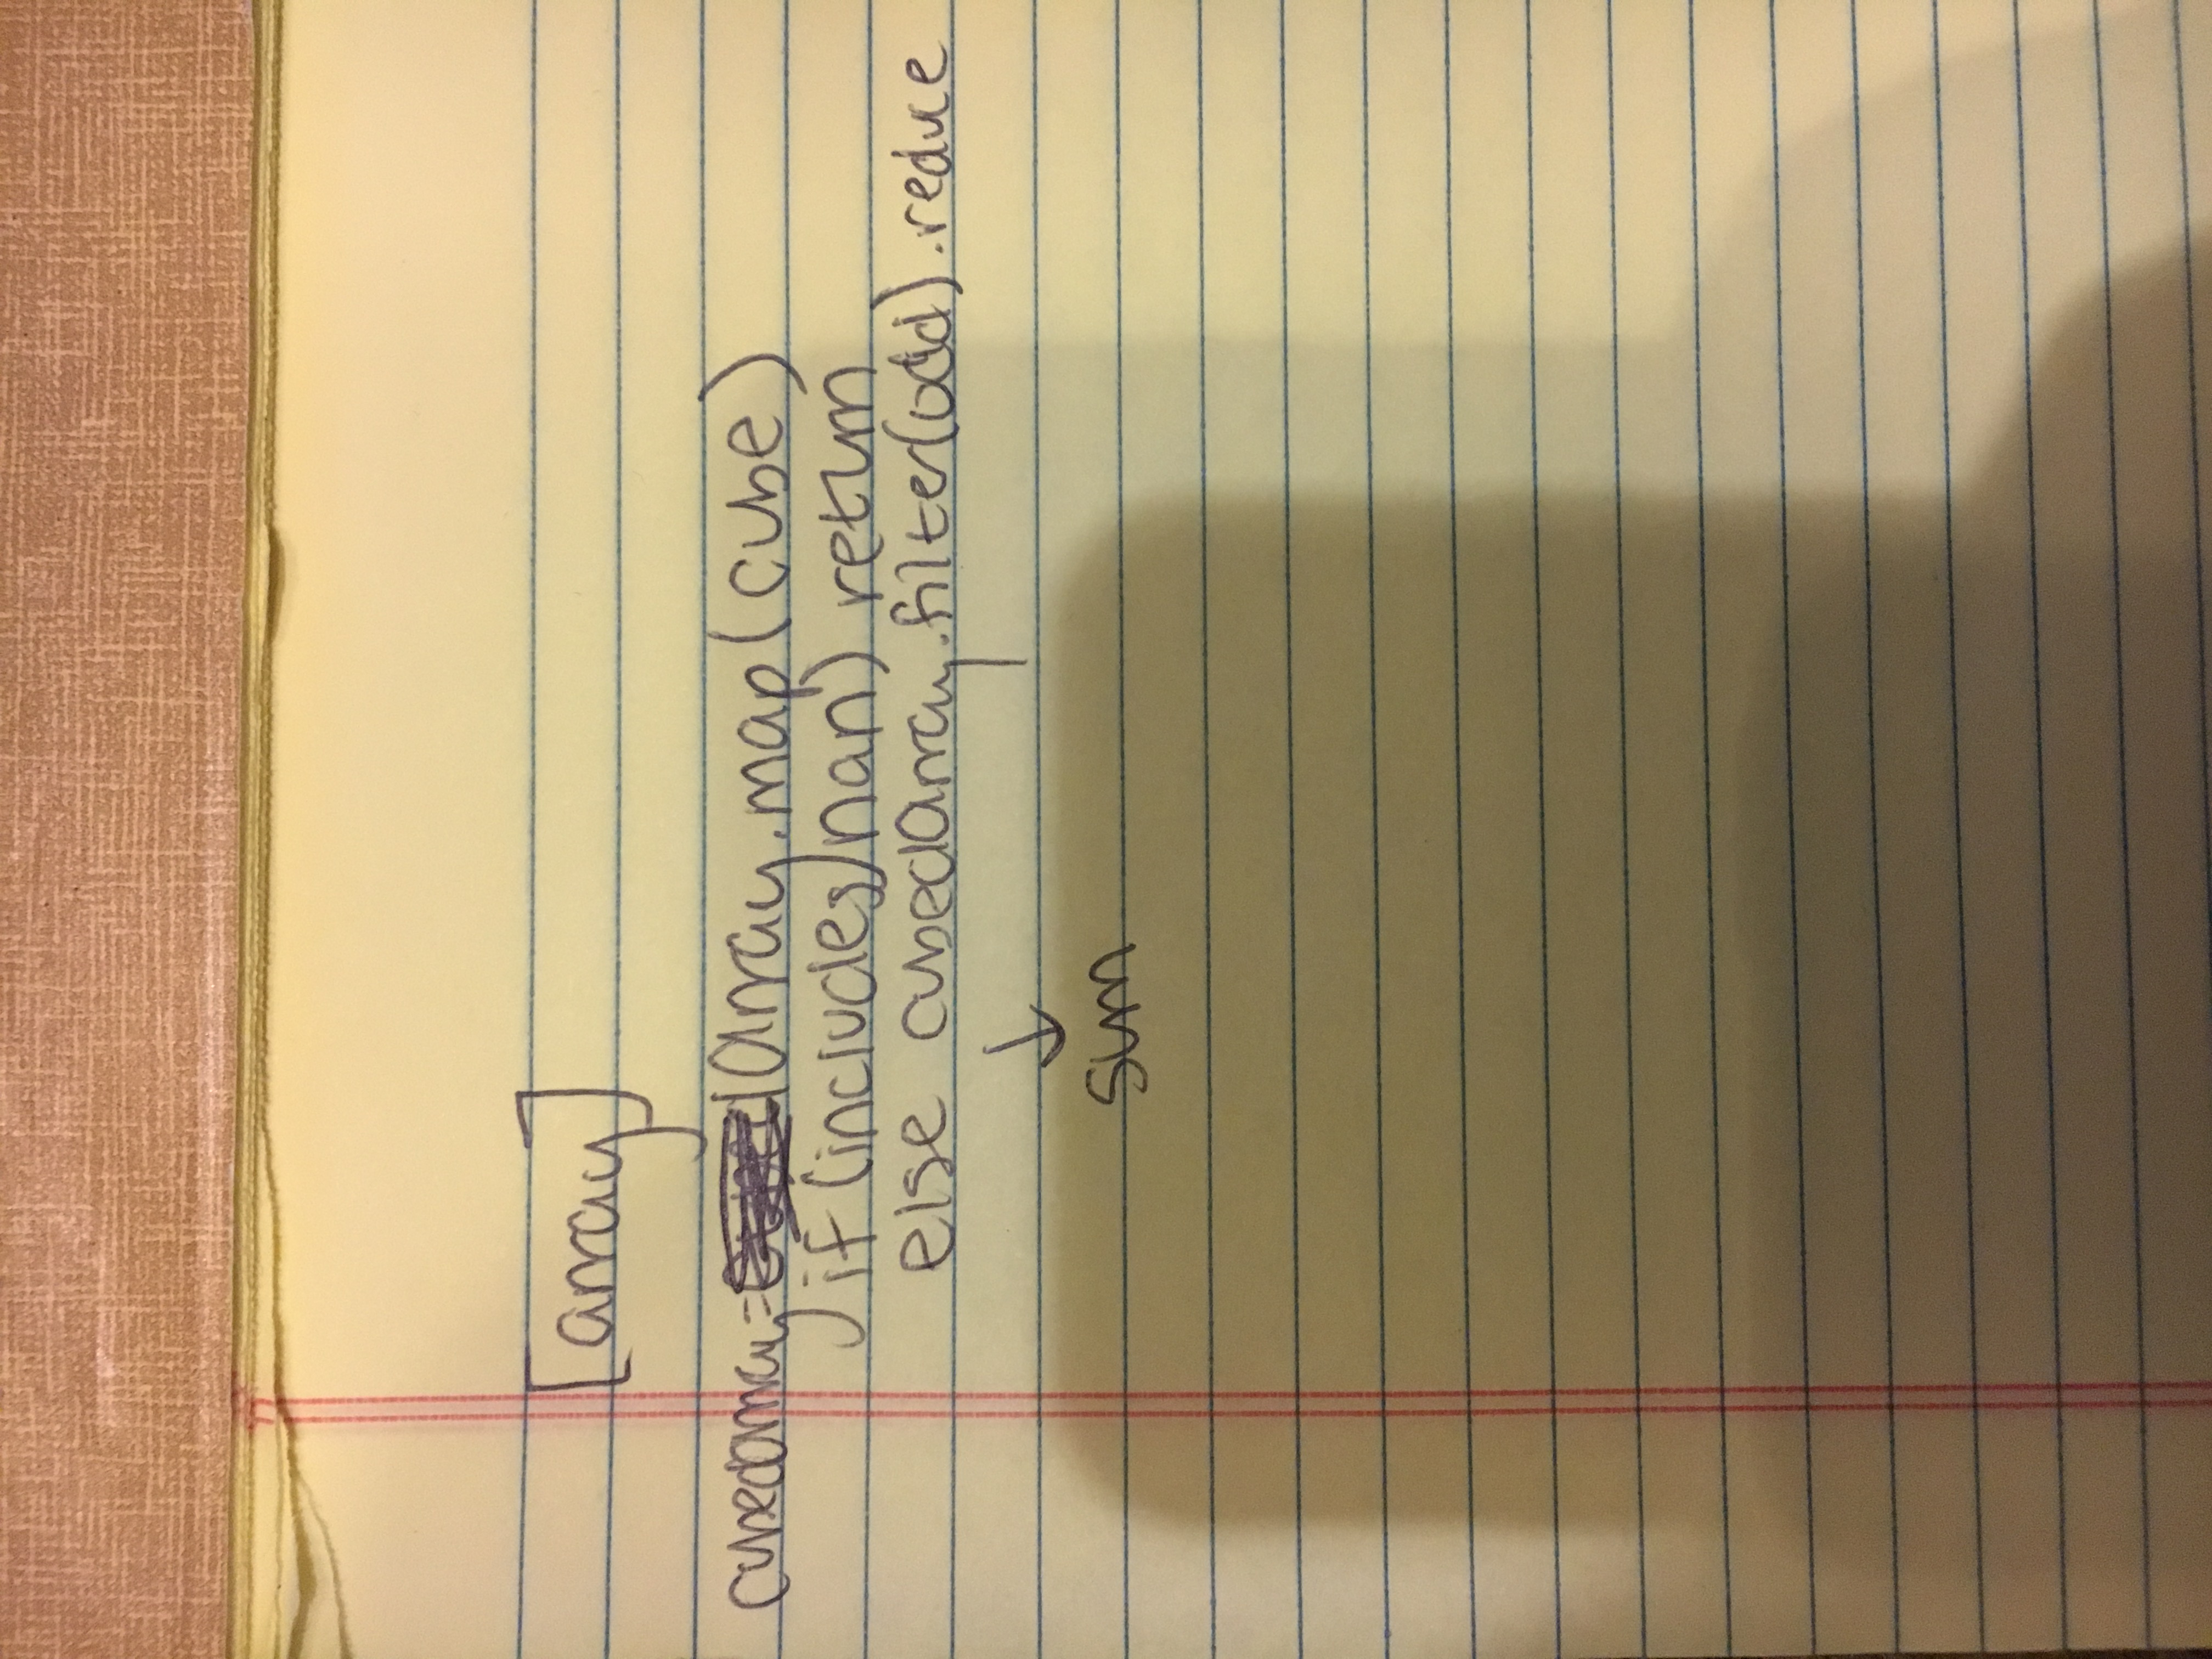 [array]
cubedarray=Array.map(cube)
if(includes/nan) return
else cubedArray.filter(odd).reduce
↓
sum